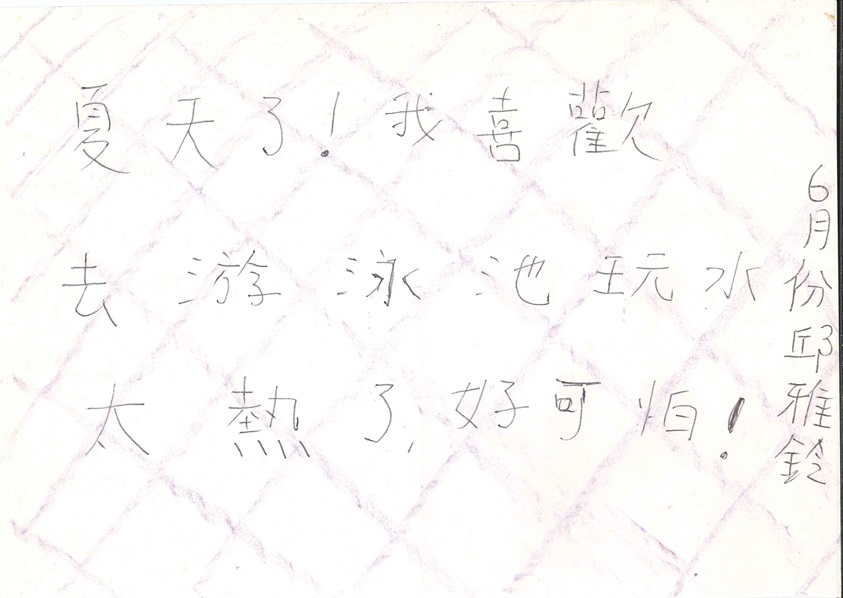 夏天了!我喜歡
去游泳池玩水
太熱了,好可怕!
6月份邱雅鈴